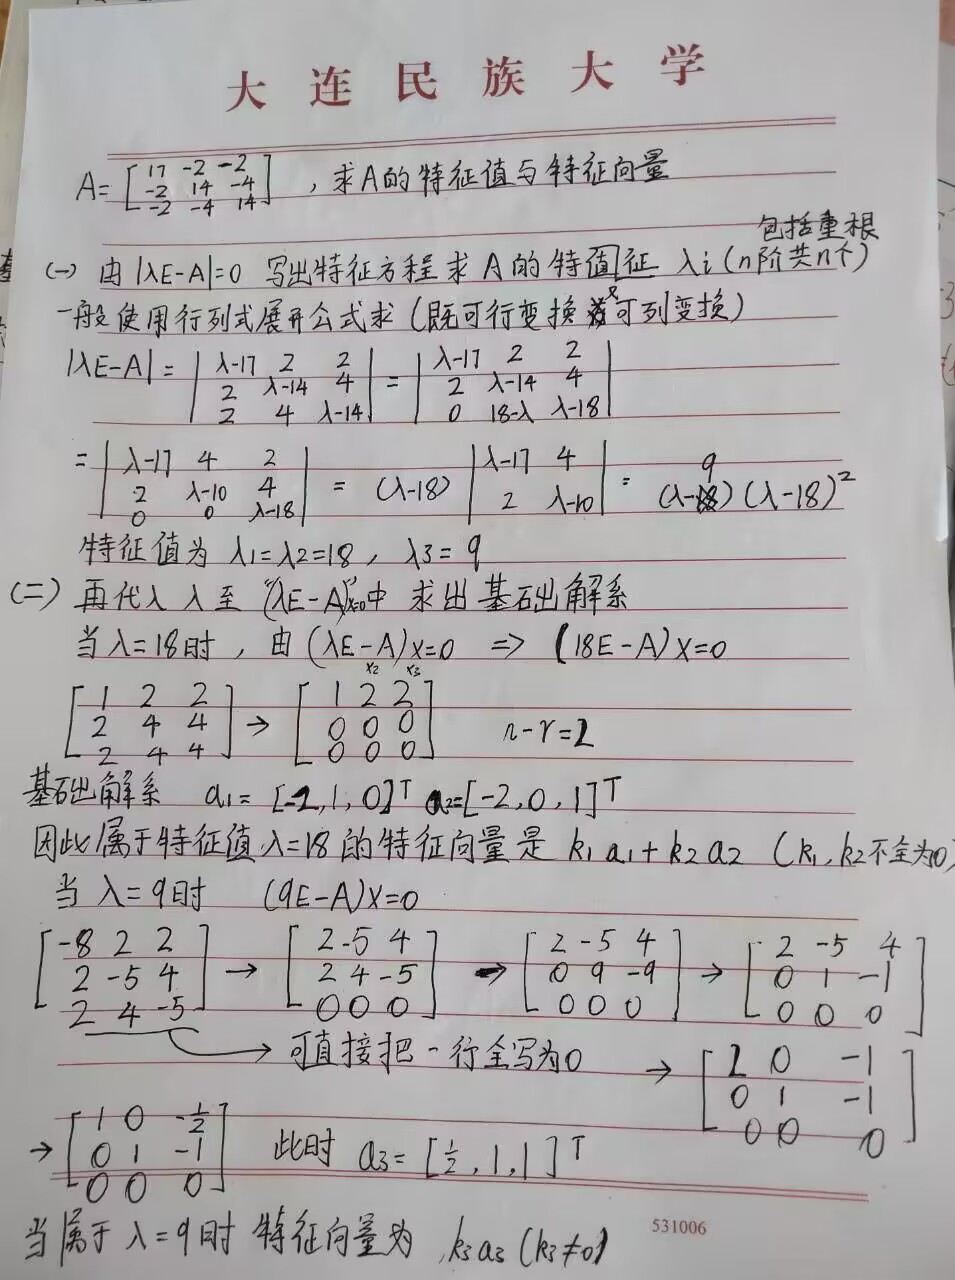 大连民族大学
A=[17 -2 -2
-2 14 -4
-2 -4 14] , 求A的特征值与特征向量
包括重根
(一) 由|λE-A|=0 写出特征方程求A的特值征 λi(n阶共n个)
一般使用行列式展开公式求(既可行变换又可列变换)
|λE-A| = |λ-17 2 2
2 λ-14 4
2 4 λ-14| = |λ-17 2 2
2 λ-14 4
0 18-λ λ-18|
= |λ-17 4 2
2 λ-10 4
0 0 λ-18| = (λ-18) |λ-17 4
2 λ-10| = (λ-9)(λ-18)²
特征值为 λ1=λ2=18, λ3=9
(二) 再代入λ至“(λE-A)x=0”中 求出基础解系
当λ=18时, 由(λE-A)x=0 => (18E-A)x=0
x2 x3
[1 2 2
2 4 4
2 4 4] → [1 2 2
0 0 0
0 0 0] n-r=2
基础解系 a1=[-2,1,0]T a2=[-2,0,1]T
因此属于特征值λ=18的特征向量是k1a1+k2a2 (k1,k2不全为0)
当λ=9时 (9E-A)x=0
[-8 2 2
2 -5 4
2 4 -5] → [2 -5 4
2 4 -5
0 0 0] → [2 -5 4
0 9 -9
0 0 0] → [2 -5 4
0 1 -1
0 0 0]
可直接把一行全写为0 → [2 0 -1
0 1 -1
0 0 0]
→ [1 0 -1/2
0 1 -1
0 0 0] 此时 a3=[1/2,1,1]T
当属于λ=9时 特征向量为 k3a3(k3≠0)
531006